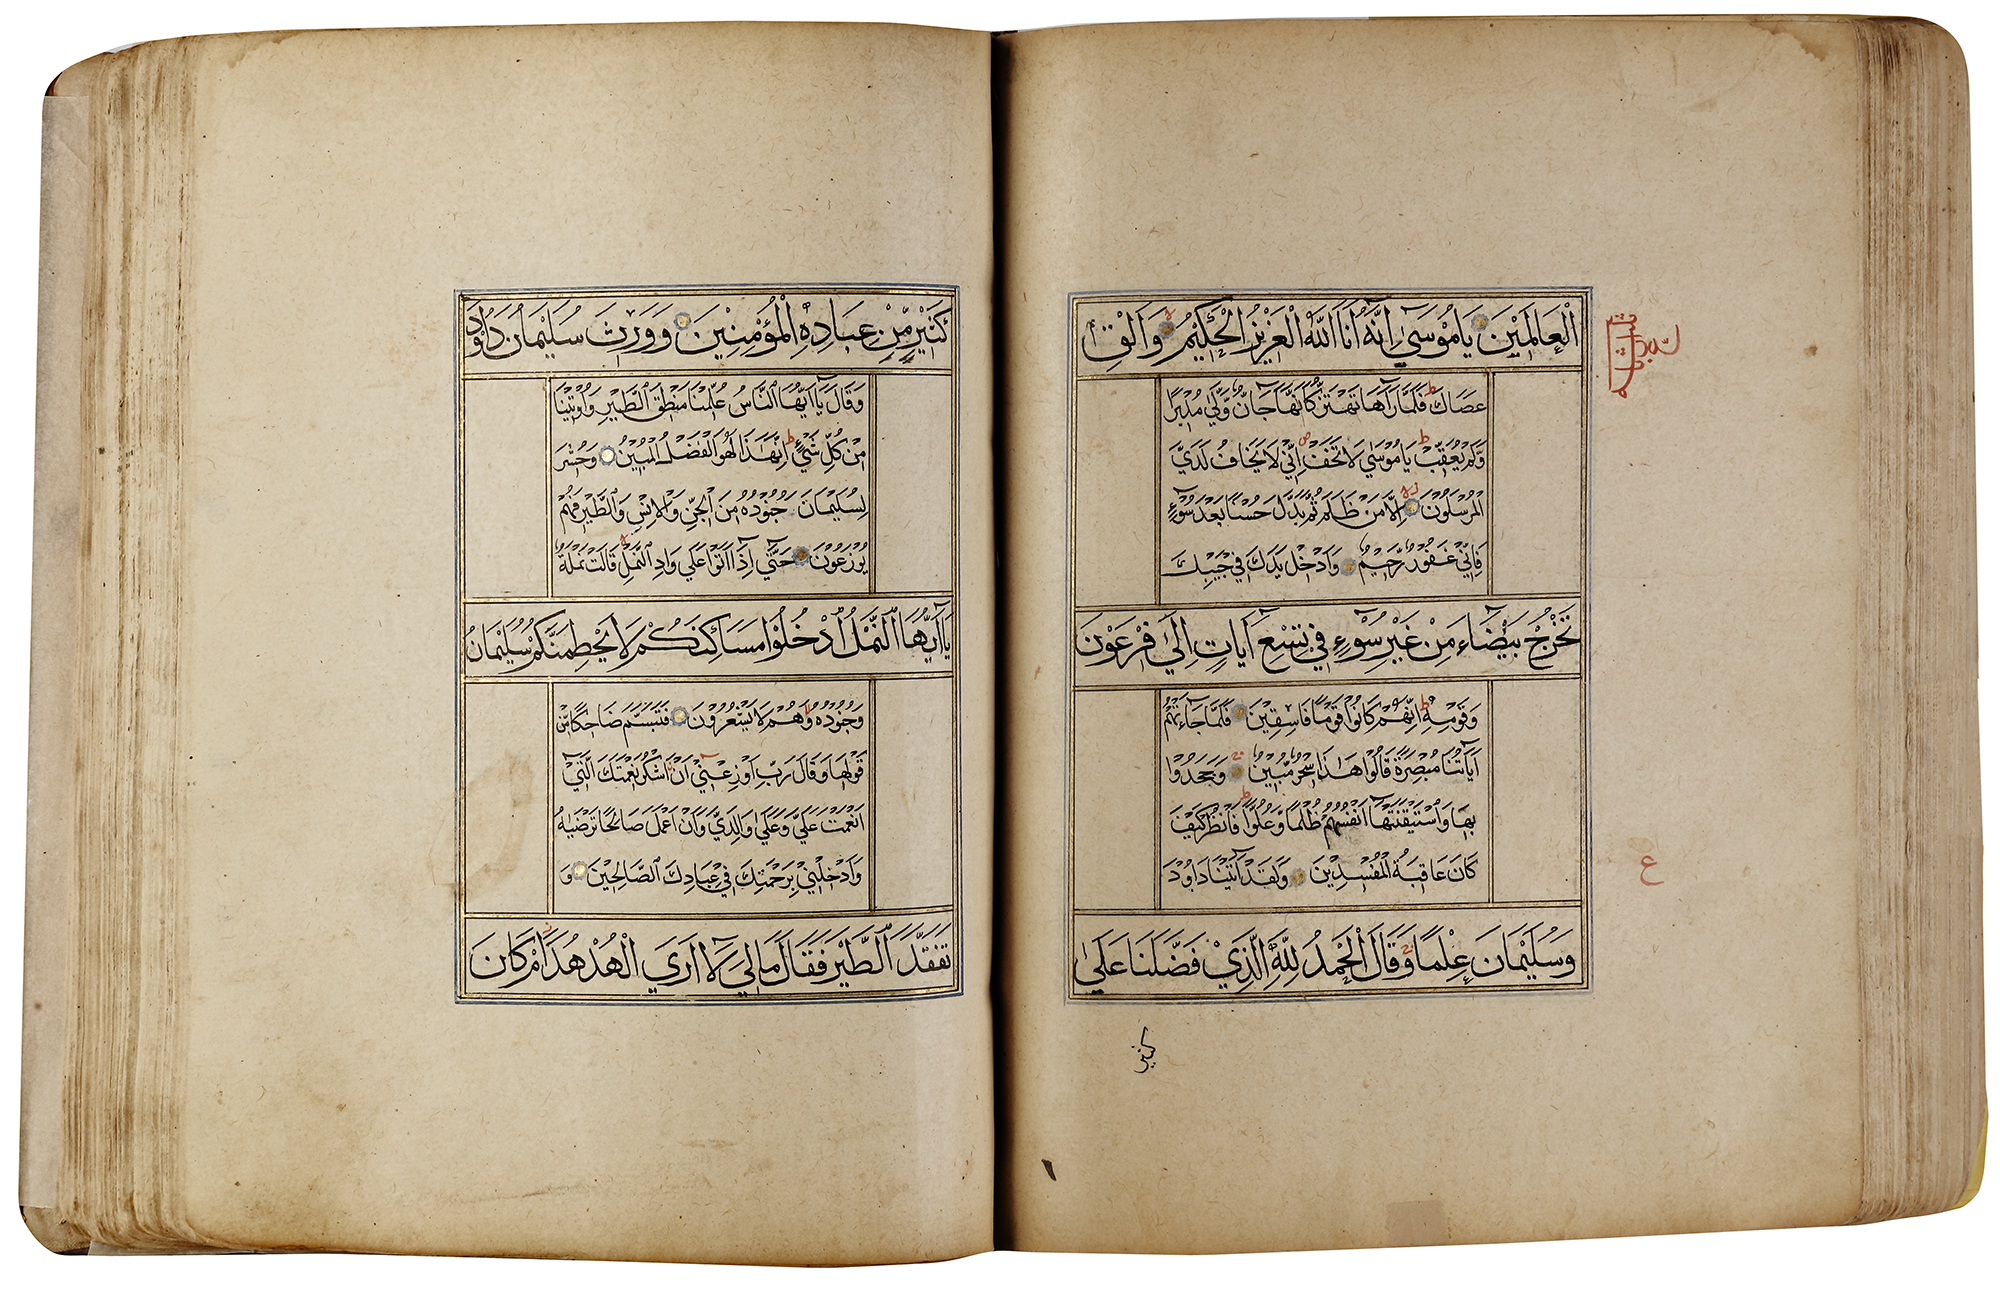 الْعَالَمِيْنَ يَا مُوْسَىٰ اِنَّهٗ اَنَا اللّٰهُ الْعَزِيْزُ الْحَكِيْمُ وَاَلْقِ
عَصَاكَ ط فَلَمَّا رَاٰهَا تَهْتَزُّ كَاَنَّهَا جَانٌّ وَّلّٰى مُدْبِرًا
وَّلَمْ يُعَقِّبْ ط يَا مُوْسٰى لَا تَخَفْ اِنِّيْ لَا يَخَافُ لَدَيَّ
الْمُرْسَلُوْنَ اِلَّا مَنْ ظَلَمَ ثُمَّ بَدَّلَ حُسْنًا بَعْدَ سُوْءٍ
فَاِنِّيْ غَفُوْرٌ رَّحِيْمٌ وَاَدْخِلْ يَدَكَ فِيْ جَيْبِكَ
تَخْرُجْ بَيْضَاءَ مِنْ غَيْرِ سُوْءٍ فِيْ تِسْعِ اٰيَاتٍ اِلٰى فِرْعَوْنَ
وَقَوْمِهٖ ط اِنَّهُمْ كَانُوْا قَوْمًا فَاسِقِيْنَ فَلَمَّا جَاءَتْهُمْ
اٰيَاتُنَا مُبْصِرَةً قَالُوْا هَٰذَا سِحْرٌ مُّبِيْنٌ وَجَحَدُوْا
بِهَا وَاسْتَيْقَنَتْهَا اَنْفُسُهُمْ ظُلْمًا وَّعُلُوًّا ط فَانْظُرْ كَيْفَ
كَانَ عَاقِبَةُ الْمُفْسِدِيْنَ وَلَقَدْ اٰتَيْنَا دَاوُدَ
وَسُلَيْمَانَ عِلْمًا وَّقَالَ الْحَمْدُ لِلّٰهِ الَّذِيْ فَضَّلَنَا عَلٰى
ع
كثير
كَثِيْرٍ مِّنْ عِبَادِهِ الْمُؤْمِنِيْنَ وَوَرِثَ سُلَيْمَانُ دَاوُدَ
وَقَالَ يَا اَيُّهَا النَّاسُ عُلِّمْنَا مَنْطِقَ الطَّيْرِ وَاُوْتِيْنَا
مِنْ كُلِّ شَيْءٍ ط اِنَّ هَٰذَا لَهُوَ الْفَضْلُ الْمُبِيْنُ وَحُشِرَ
لِسُلَيْمَانَ جُنُوْدُهٗ مِنَ الْجِنِّ وَالْاِنْسِ وَالطَّيْرِ فَهُمْ
يُوْزَعُوْنَ حَتّٰى اِذَا اَتَوْا عَلٰى وَادِ النَّمْلِ قَالَتْ نَمْلَةٌ
يَا اَيُّهَا النَّمْلُ ادْخُلُوْا مَسَاكِنَكُمْ لَا يَحْطِمَنَّكُمْ سُلَيْمَانُ
وَجُنُوْدُهٗ وَهُمْ لَا يَشْعُرُوْنَ فَتَبَسَّمَ ضَاحِكًا مِّنْ
قَوْلِهَا وَقَالَ رَبِّ اَوْزِعْنِيْ اَنْ اَشْكُرَ نِعْمَتَكَ الَّتِيْ
اَنْعَمْتَ عَلَيَّ وَعَلٰى وَالِدَيَّ وَاَنْ اَعْمَلَ صَالِحًا تَرْضٰيهُ
وَاَدْخِلْنِيْ بِرَحْمَتِكَ فِيْ عِبَادِكَ الصَّالِحِيْنَ وَ
تَفَقَّدَ الطَّيْرَ فَقَالَ مَا لِيَ لَا اَرَى الْهُدْهُدَ اَمْ كَانَ